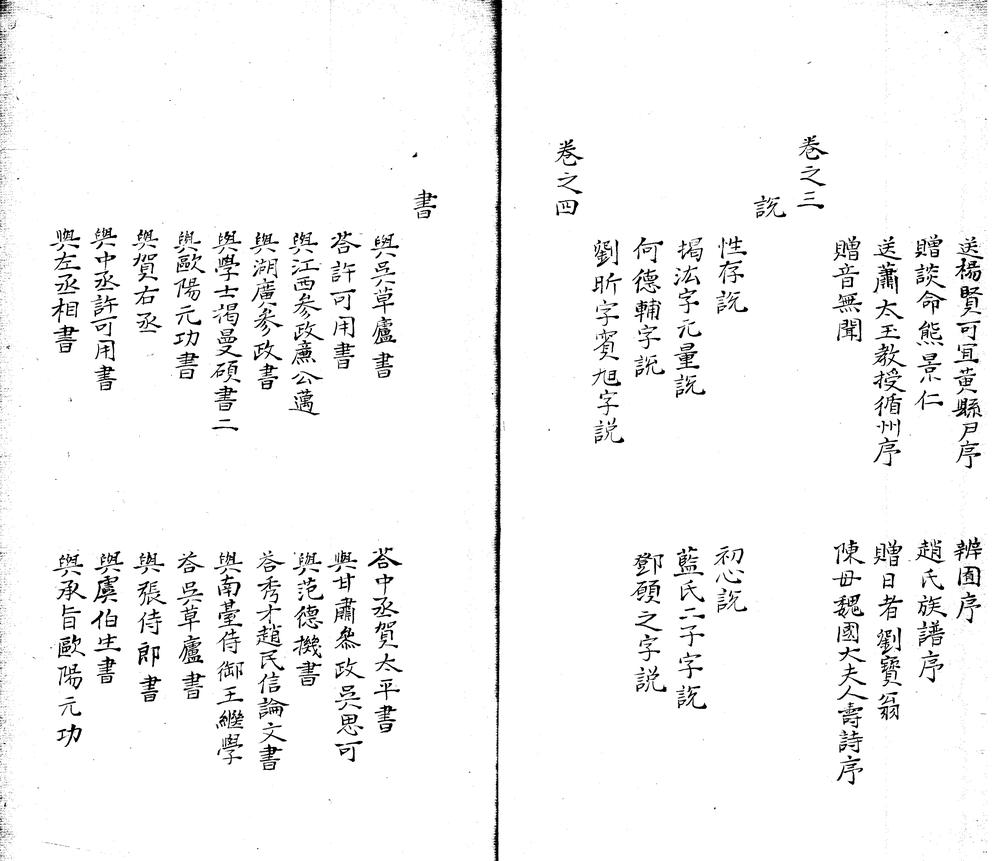 送楊賢可宜黃縣尹序
辨圃序
贈談命熊景仁
趙氏族譜序
送蕭太玉教授循州序
贈日者劉寶翁
贈音無聞
陳母魏國大夫人壽詩序
卷之三
說
性存說
初心說
揭汯字元量說
藍氏二子字說
何德輔字說
鄧願之字說
劉昕字賓旭字說
卷之四
書
與吳草廬書
荅中丞賀太平書
荅許可用書
與甘肅叅政吳思可
與江西参政廉公邁
與范德機書
與湖廣参政書
荅秀才趙民信論文書
與學士揭曼碩書二
與南臺侍御王繼學
與歐陽元功書
荅吳草廬書
與賀右丞
與張侍郎書
與中丞許可用書
與虞伯生書
與左丞相書
與承旨歐陽元功